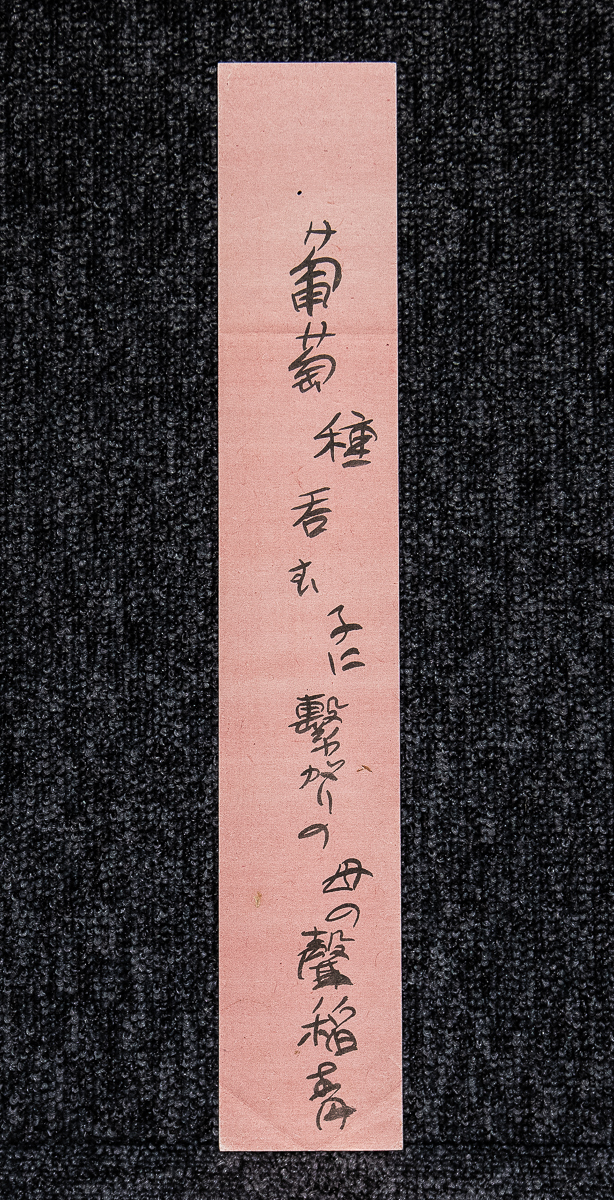 葡萄種呑む子に繋がりの母の聲稲青